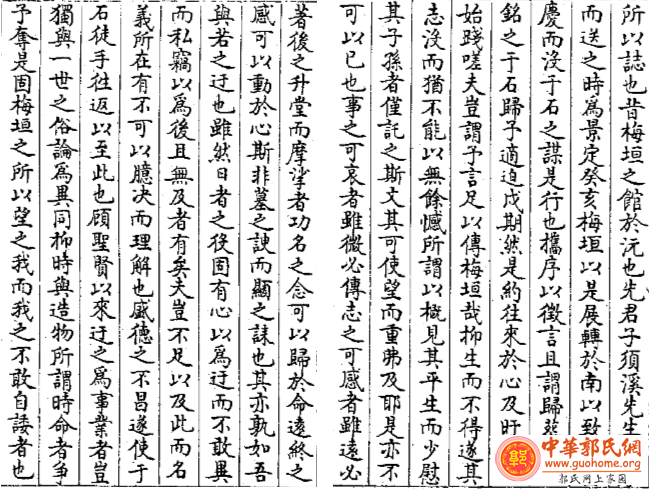 所以誌也昔梅垣之館於沅也先君子須溪先生
而送之時為景定癸亥梅垣以是展轉於南以致
慶而沒于石之謀是行也攜序以徵言且謂歸茲
銘之于石歸予適迫戍期然是約往來於心及旴
始踐嗟夫豈謂予言足以傳梅垣哉抑生而不得遂其
志沒而猶不能以無餘憾所謂以概見其平生而少慰
其子孫者僅託之斯文其可使望而重弗及耶是亦不
可以已也事之可哀者雖微必傳志之可感者雖遠必
著後之升堂而摩挲者功名之念可以歸於命遠終之
感可以動於心斯非墓之諛而顯之誄也其亦孰如吾
與若之迂也雖然日者之役固有心以為迂而不敢異
而私竊以為後且無及者有矣夫豈不足以及此而名
義所在有不可以臆決而理解也感德之不昌遂使于
石徒手往返以至此也顧聖賢以來迂之為事業者豈
獨與一世之俗論為異同抑時與造物所謂時命者爭
予奪是固梅垣之所以望之我而我之不敢自諉者也
中華郭氏網
www.guohome.org
郭氏网上家園